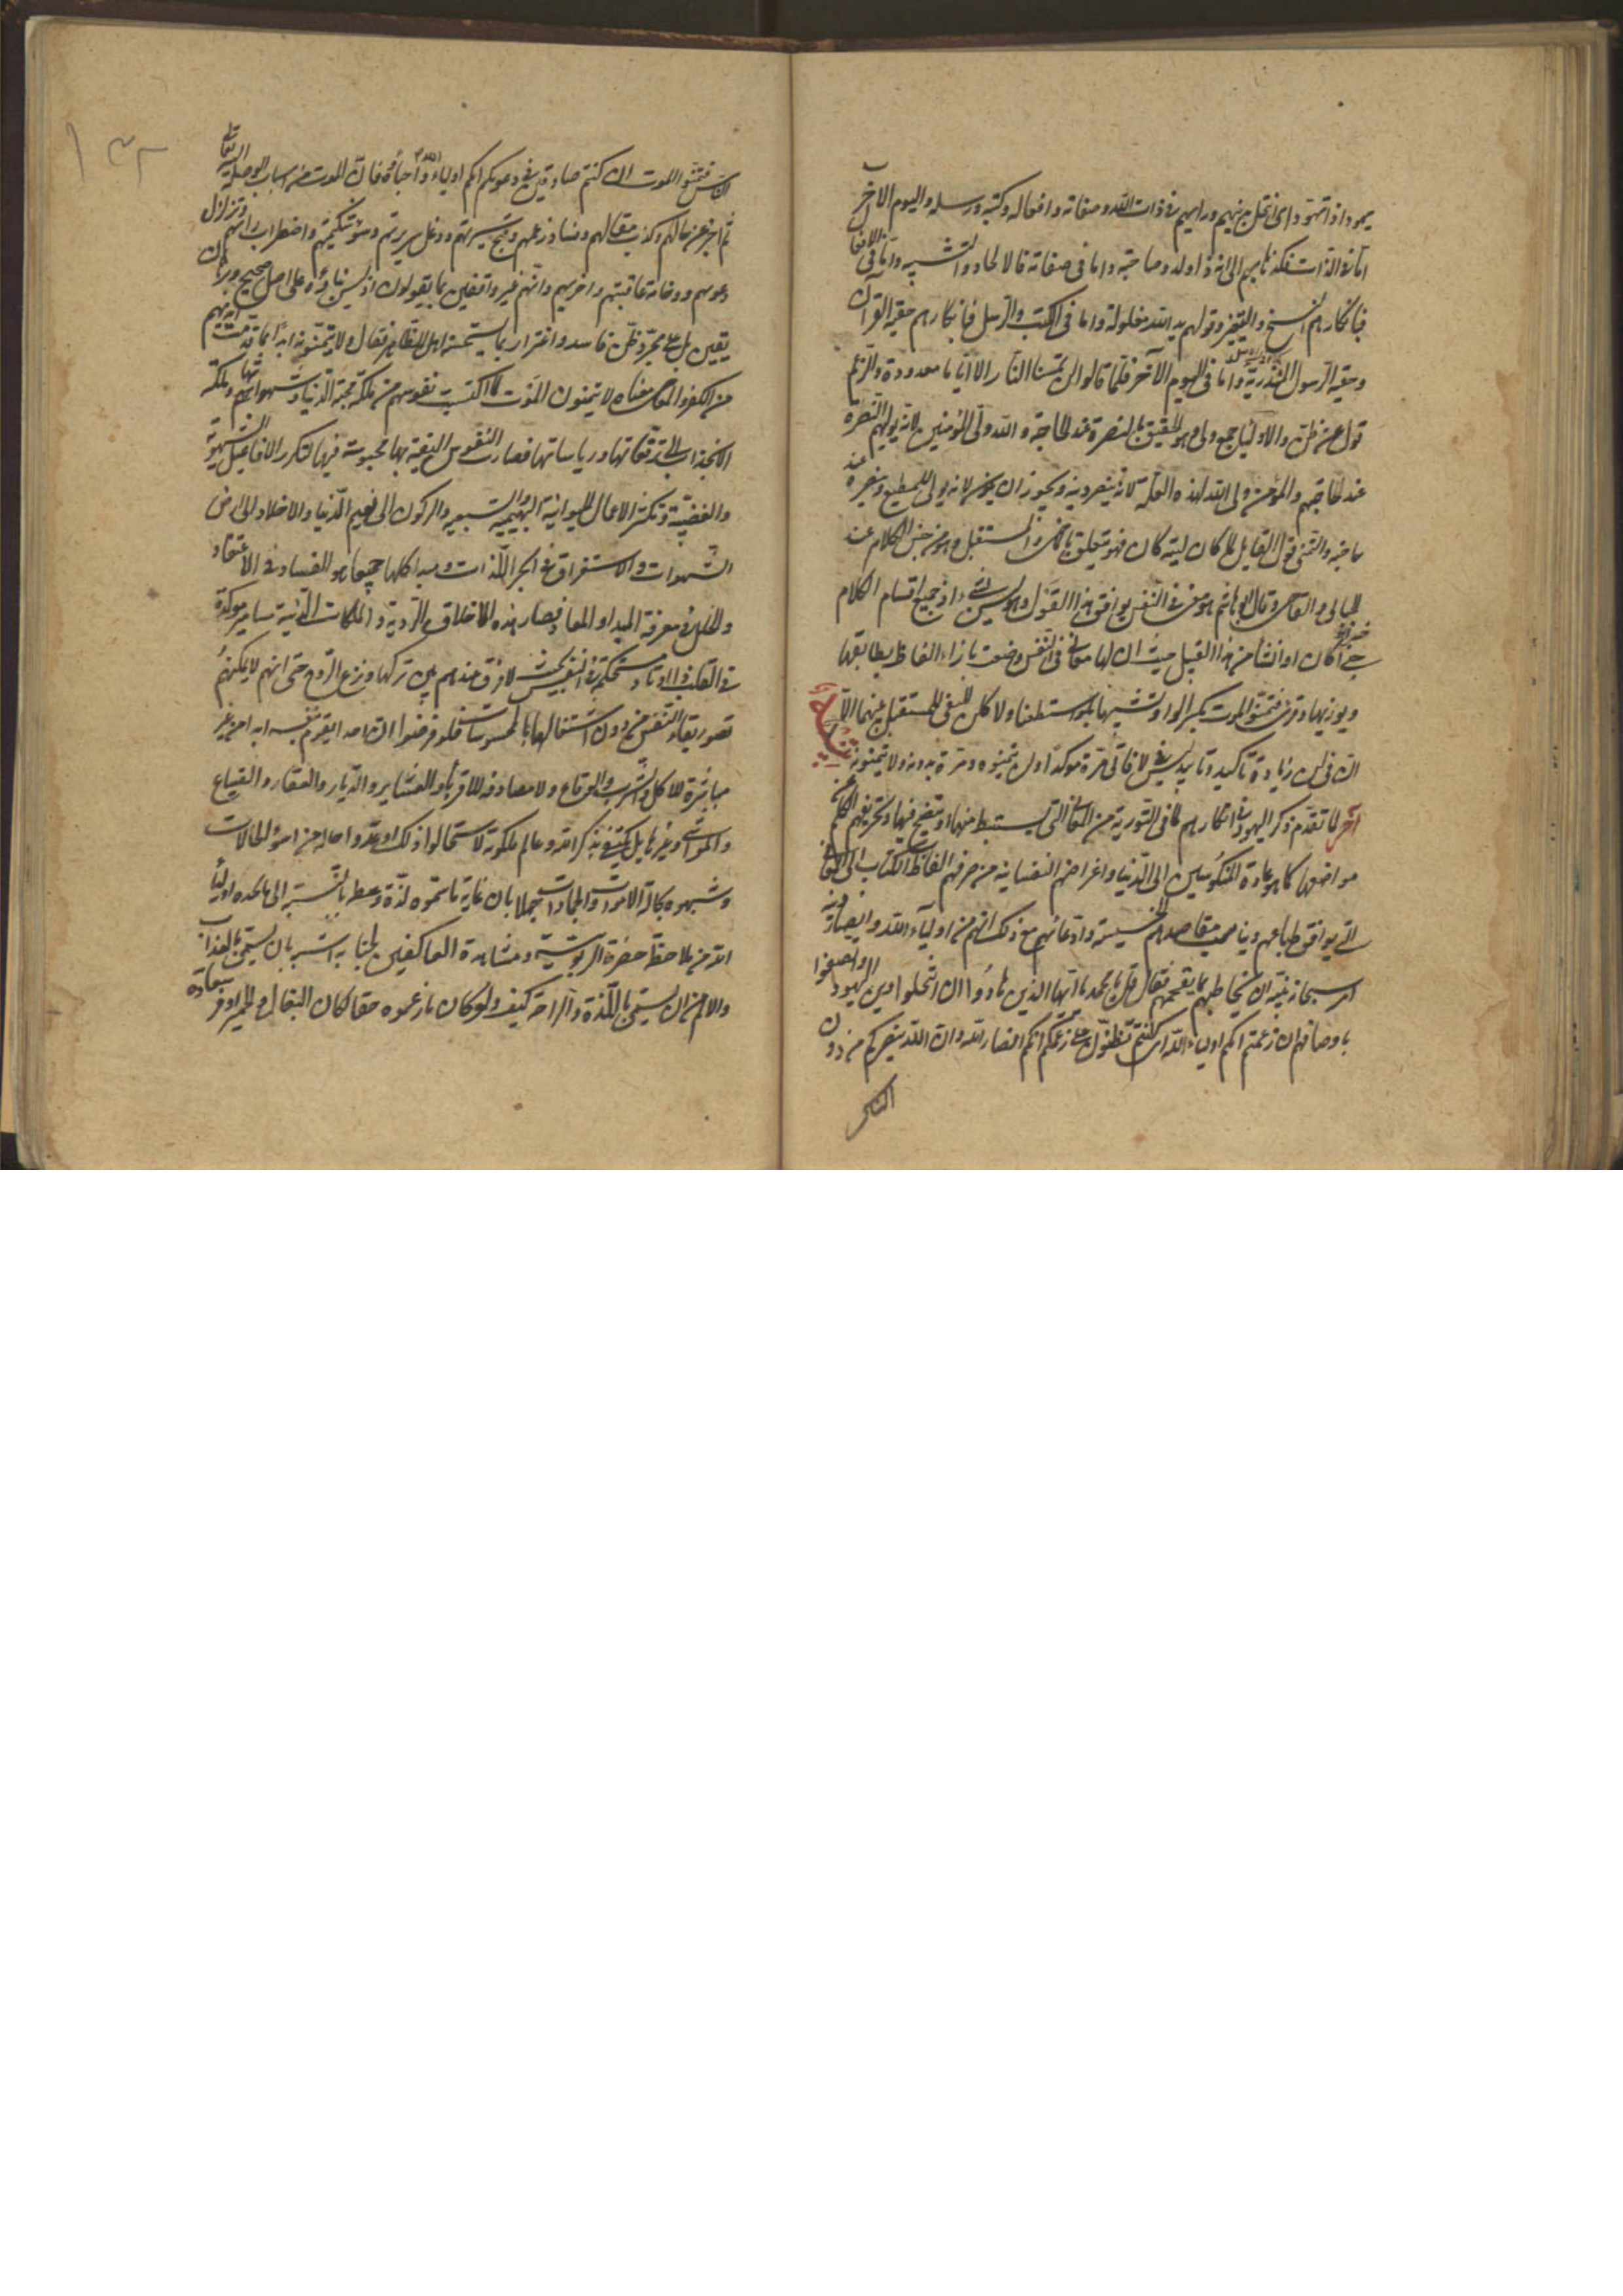 يهود اذا تهود اى انتحل دينهم ورايهم فى ذات الله وصفاته وافعاله وكتبه ورسله واليوم الآخر
اما فى الذات فكذهابهم الى انه ذا ولد وصاحبة واما فى صفاته فالالحاد والتشبيه واما فى الافعال
فبانكارهم النسخ والتغيير وقولهم يد الله مغلولة واما فى الكتب والرسل فانكارهم حقية القرآن
وحقية الرسول واما فى اليوم الآخر فلما قالوا لن تمسنا النار الا اياما معدودة والزعم
قول عن ظن والاولياء جمع ولى وهو الحقيق بالنصرة عند الحاجة والله ولى المؤمنين لانه يوليهم النصرة
عند حاجتهم والمؤمن ولى الله لهذه العلة لانه ينصر دينه ويجوز ان يكون لانه يولى المطيع وينصره عند
حاجته والتمنى قول القايل لما كان ليته كان فهو يتعلق بالماضى والمستقبل وهو من جنس الكلام عند
الجبائى والقاضى وقال ابو هاشم هو معنى فى النفس يوافق هذا القول وليس بشىء اذ جميع اقسام الكلام
خبرا كان او انشاء من هذا القبيل حيث ان لها معانى فى النفس وضعت بازاء الفاظ يطابقها
ويوازيها وقرئ فتمنوا الموت بكسر الواو تشبيها بلو استطعنا ولا كلن للنفى للمستقبل منهما الا
ان فى لن زيادة تاكيد وتاييد ليس فى لا فاتى مرة مؤكدا ولن يتمنوه ومرة بدونه ولا يتمنونه
لما تقدم ذكر اليهود فى انكارهم لما فى التورية من المعانى التى يستنبط منها ويتضح فيها وتحريفهم الكلم عن
مواضعها كما هو عادة المنكوسين الى الدنيا واغراضهم النفسانية من صرفهم الفاظ الكتاب الى المعانى
التى يوافق طباعهم ويناسب مقاصدهم الخسيسة وادعائهم مع ذلك انهم من اولياء الله وانصار دينه
امر سبحانه نبيه ان يخاطبهم بما يفحمهم فقال قل يا محمد يا ايها الذين هادوا ان انتحلوا دين اليهود واتصفوا
باوصافهم ان زعمتم انكم اولياء الله ان كنتم تظنون على زعمكم انكم انصار الله وان الله ينصركم من دون
الناس
١٣٢
الناس فتمنوا الموت ان كنتم صادقين فى دعويكم انكم اولياء الله واحباؤه فان الموت من اسباب الوصلة اليه تعالى
ثم اخبر عن حالهم وكذب مقالهم وفساد زعمهم وقبح سيرتهم ودغل سريرتهم وسوء شكيمتهم واضطراب رايهم وتزلزل
دعويهم ووخامة عاقبتهم واخريهم وانهم غير واقفين بما يقولون اذ ليس بناؤه على اصل صحيح وبرهان
يقين بل على مجرد ظن فاسد واغترار بما يستحسنه اهل الظاهر فقال ولا يتمنونه ابدا بما قدمت ايديهم
من الكفر والمعاصى معناه لا يتمنون الموت لما اكتسبت نفوسهم من ملكة محبة الدنيا وشهواتها وملكة
الانجذاب الى ترفعاتها ورياساتها فصارت النفوس اليقينة بها محبوسة فيها لتكرر الافاعيل الشهوية
والغضبية وتكثر الاعمال الحيوانية البهيمية والسبعية والركون الى نعيم الدنيا والاخلاد الى ارض
الشهوات والاستغراق فى ابحر اللذات ومبدا كلها جميعا هو الفساد فى الاعتقاد
والخلل فى معرفة المبداء والمعاد فصار هذه الاخلاق الردية والملكات الدنية مسامير مؤكدة
فى القلب واوتادا مستحكمة فى النفس بحيث لا فرق عندهم بين تركها ونزع الروح حتى انهم لا يمكنهم
تصور بقاء النفس من دون اشتغالها بالمحسوسات فلو فرضوا ان احدا يقوم بنفسه ابدا من غير
مباشرة للاكل والشرب والوقاع ولا مصادفة للاقرباء والعشاير والديار والعقار والضياع
والمواشى وغيرها بل يكتفى بذكر الله وعالم ملكوته لاستحالوا ذلك او عدوا حاله من اسوء الحالات
وشبهوه بحالة الاموات والجمادات جهلا بان غاية ما سموه لذة وعطب بالنسبة الى ما يجده اولياء
الله من ملاحظة حضرة الربوبية ومشاهدة العاكفين بجنابه اشبه بان يسمى بالعذاب
والالم من ان يسمى باللذة والراحة كيف ولو كان ما زعموه حقا لكان البغال والحمير اوفر سعادة